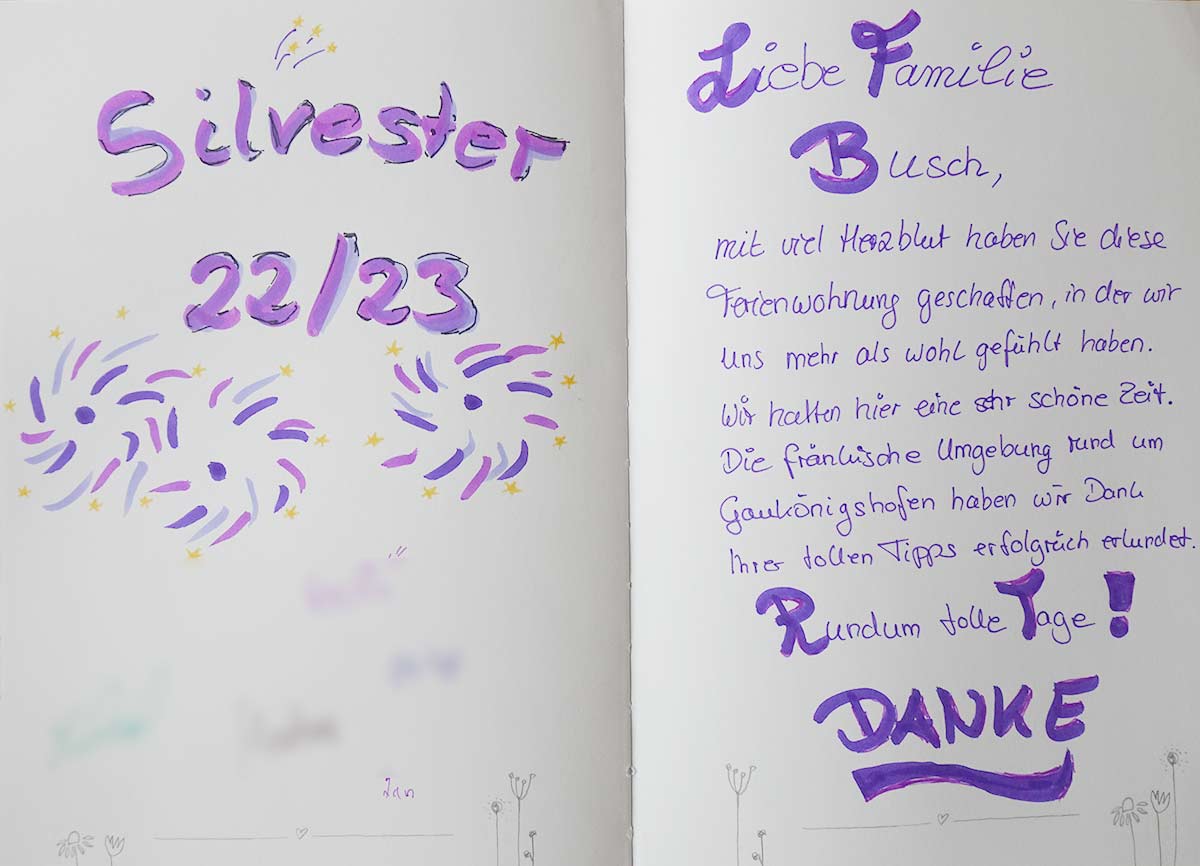 Silvester
22/23
Jan
Liebe Familie
Busch,
mit viel Herzblut haben Sie diese
Ferienwohnung geschaffen, in der wir
uns mehr als wohl gefühlt haben.
Wir hatten hier eine sehr schöne Zeit.
Die fränkische Umgebung rund um
Gaukönigshofen haben wir Dank
Ihrer tollen Tipps erfolgreich erkundet.
Rundum tolle Tage!
DANKE